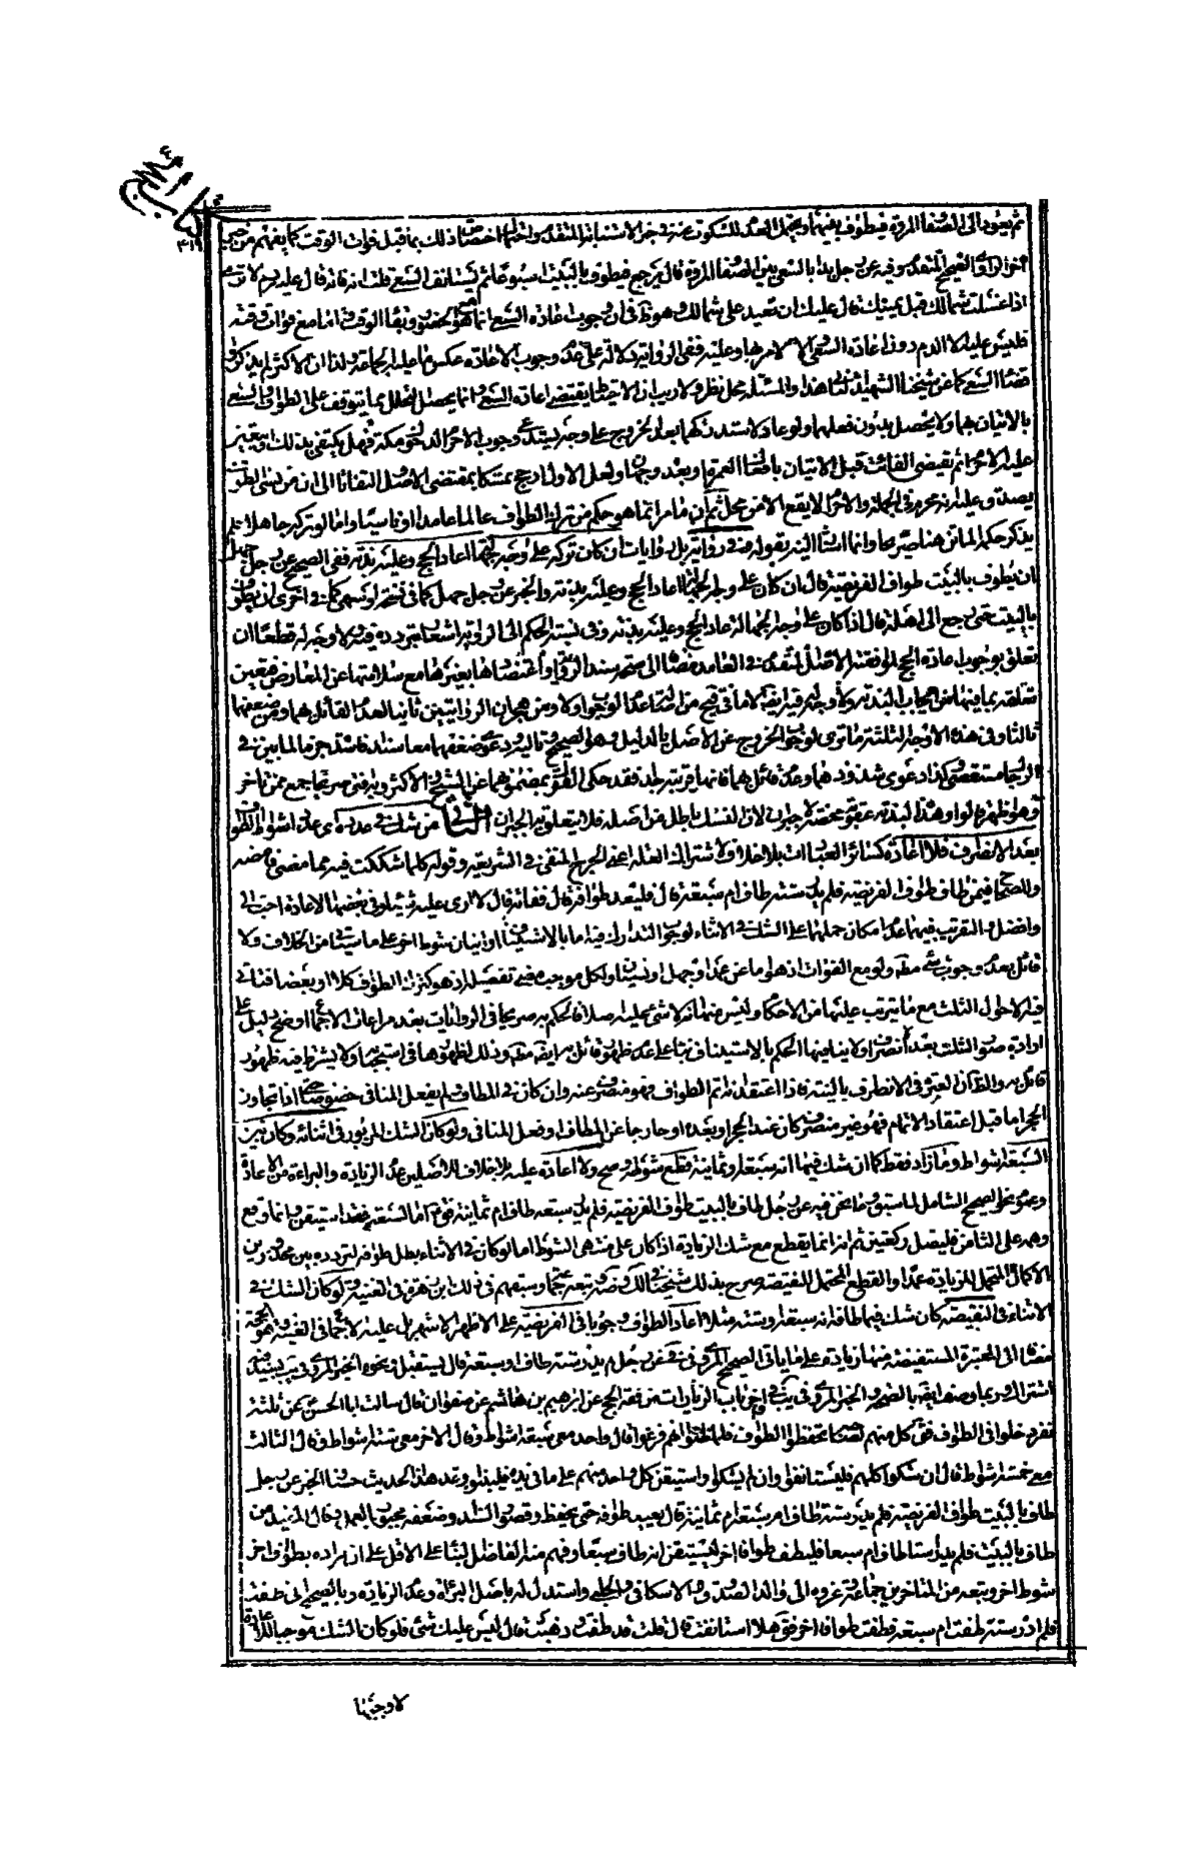 كتاب الحج
٤١٩
ثم يعود الى الصفا والمروة فيطوف بينهما ويحتمل العدم للسكوت عنه في خبر الاستنابة المتقدم واحتمال اختصاص ذلك بما قبل فوات الوقت كما يفهم من
الصحيح المتقدم وفيه عن رجل بدا بالسعي بين الصفا والمروة قال يرجع فيطوف بالبيت اسبوعا ثم يستانف السعي قلت انه فاته قال عليه دم الا ترى
اذا غسلت شمالك قبل يمينك قال عليك ان تعيد على شمالك وهو في ان وجوب اعادة السعي انما هو وبقاء الوقت واما مع فوات وقته
فليس عليه الا الدم دون اعادة السعي وعليه ففي الرواية دلالة على عدم وجوب الاعادة عكس ما عليه الجماعة ولذا ان الاكثر لم يذكروا
قضاء السعي كما عن شيخنا الشهيد الثاني هذا والمسئلة محل نظر ولا ريب ان الاحتياط يقتضي اعادة السعي وانما يحصل التحلل مما يتوقف على الطواف والسعي
بالاتيان بهما ولا يحصل بدون فعلهما ولو عاد لاستدراكهما بعد الخروج على وجه يستدعي وجوب الاحرام لدخول مكة فهل يكتفي بذلك او يتعين
عليه الاحرام ثم يقضي الفائت قبل الاتيان بافعال العمرة او بعده وجهان ولعل الاول ارجح تمسكا بمقتضى الاصل التفاتا الى ان من نسي الطواف
يصدق عليه انه محرم في الجملة والاحرام لا يقع الا من محل ثم ان ما مر انما هو حكم من ترك الطواف عالما عامدا او ناسيا واما لو تركه جاهلا فلم
يذكر حكمه الماتن هنا صريحا وانما اشار اليه بقوله وفي رواية بل روايات ان كان تركه على وجه جهالة اعاد الحج وعليه بدنة ففي الصحيح عن رجل جهل
ان يطوف بالبيت طواف الفريضة قال ان كان على وجه الجهالة اعاد الحج وعليه بدنة والخبر عن رجل جهل كما في نسخة او سهى كما في اخرى ان يطوف
بالبيت حتى رجع الى اهله قال اذا كان على وجه الجهالة اعاد الحج وعليه بدنة وفي نسبة الحكم الى الرواية اشعار بتردده فيه ولا وجه له قطعا ان
تعلق بوجوب اعادة الحج لموافقته الاصل المتقدم في العامد مضافا الى صحة سند الرواية واعتضادها بغيرها مع سلامتها عن المعارض فتعين
تعلقه بما فيها من ايجاب البدنة ولا وجه له فيه ايضا
ثالثا وفي هذه الاوجه الثلثة ما ترى لوجوب الخروج عن الاصل بالدليل وهو الصحيح وتاليه ودعوى ضعفهما معا سندا فاسدة جزما لما بين في
الرجال مستقصى وكذا دعوى شذوذهما وعدم قائل بهما فانها غريبة جدا فقد حكى القول بمضمونهما عن الشيخ والاكثر وبه افتى صريحا جمع ممن تاخر
وهو اظهر قالوا وهذه البدنة عقوبة محضة لا جبران لان النسك باطل من اصله فلا يتعلق به الجبران الثاني من شك في عدده اي عدد اشواط الطواف
بعد الانصراف فلا اعادة كسائر العبادات بلا خلاف لاشتراك العلة اعني الحرج المنفي في الشريعة وقوله كلما شككت فيه مما مضى فامضه
وللصحاح فيمن طاف طواف الفريضة فلم يدر ستة طاف ام سبعة قال فليعد طوافه قال ففاته قال لا ارى عليه شيئا وفي بعضها الاعادة احب الي
وافضل والتقريب فيها عدم امكان حملها على الشك في الاثناء لوجوب التدارك فيه اما بالاستيناف او اتيان شوط اخر على ما سياتي من الخلاف ولا
قائل بعدم وجوب شيء مطلقا ولو مع الفوات اذ هو اما عن عمد او جهل او نسيان ولكل موجب مضى تفصيله اذ هو كترك الطواف كلا او بعضا فتاتي
فيه الاحوال الثلث مع ما يترتب عليها من الاحكام وليس منها انه لا شيء عليه اصلا فالحكم به صريحا في الروايات بعد مراعات الاجماع اوضح دليل على
ارادة صورة الثلث بعد الانصراف ولا ينافيها الحكم بالاستيناف بناء على عدم ظهور قائل به ايضا مطلقا وذلك لظهورها في استحبابه ولا يشترط فيه ظهور
قائل به والظاهر ان العبرة في الانصراف بالنية فاذا اعتقد انه اتم الطواف فهو منصرف عنه وان كان في المطاف ولم يفعل المنافي خصوصا اذا تجاوز
الحجر اما قبل اعتقاد الاتمام فهو غير منصرف كان عند الحجر او بعده او خارجا عن المطاف او فعل المنافي ولو كان الشك المزبور في اثنائه وكان بين
السبعة اشواط وما زاد فقط كما ان شك فيها انه سبعة او ثمانية قطع شوطه وصح ولا اعادة عليه بلا خلاف للاصلين عدم الزيادة والبراءة من الاعادة
وعموم نحو الصحيح الشامل لما سبق وما نحن فيه عن رجل طاف بالبيت طواف الفريضة فلم يدر سبعة طاف ام ثمانية فقال اما السبعة فقد استيقن وانما وقع
وهمه على الثامن فليصل ركعتين ثم انه انما يقطع مع شك الزيادة اذا كان على منتهى الشوط اما لو كان في الاثناء بطل طوافه لتردده بين محذورين
الاكمال المحتمل للزيادة عمدا والقطع المحتمل للنقيصة صرح بذلك شيخنا في لك وضه وتبعه جمع وسبقهم في ذلك ابن زهرة في الغنية ولو كان الشك في
الاثناء في النقيصة كان شك فيما طافه انه سبعة او ستة مثلا اعاد الطواف وجوبا في الفريضة على الاظهر الاشهر بل عليه الاجماع في الغنية وهو الحجة
مضافا الى المعتبرة المستفيضة منها زيادة على ما ياتي الصحيح المروي في يب عن رجل لم يدر ستة طاف او سبعة قال يستقبل ونحوه الخبر المروي في يب بسند فيه
اشتراك وربما وصف ايضا بالصحة والخبر المروي في يب في اواخر باب الزيارات من فقه الحج عن ابراهيم بن هاشم عن صفوان قال سالت ابا الحسن ع عن ثلثة
نفر دخلوا في الطواف فقال كل منهم لصاحبه تحفظوا الطواف فلما ظنوا انهم فرغوا قال واحد معي سبعة اشواط وقال الاخر معي ستة اشواط وقال الثالث
معي خمسة اشواط قال ان شكوا كلهم فليستانفوا وان لم يشكوا واستيقن كل واحد منهم على ما في يده فليبنوا ويعد هذا الحديث حسنا والخبر عن رجل
طاف بالبيت طواف الفريضة فلم يدر ستة طاف ام سبعة ام ثمانية قال يعيد طوافه حتى يحفظ وقصور السند وضعفه مجبور بالعمل وقال المفيد من
طاف بالبيت فلم يدر ستا طاف ام سبعا فليطف طوافا اخر ليستيقن انه طاف سبعا وفهم منه الفاضل البناء على الاقل على ان مراده بطواف اخر
شوط اخر وتبعه من المتاخرين جماعة وعزوه الى والد الصدوق والاسكافي والحلبي واستدل له باصل البراءة وعدم الزيادة وبالصحيح اني طفت
فلم ادر ستة طفت ام سبعة فطفت طوافا اخر فقال هلا استانفت قال قلت قد طفت وذهبت قال ليس عليك شيء فلو كان الشك موجبا للاعادة
لاوجبها